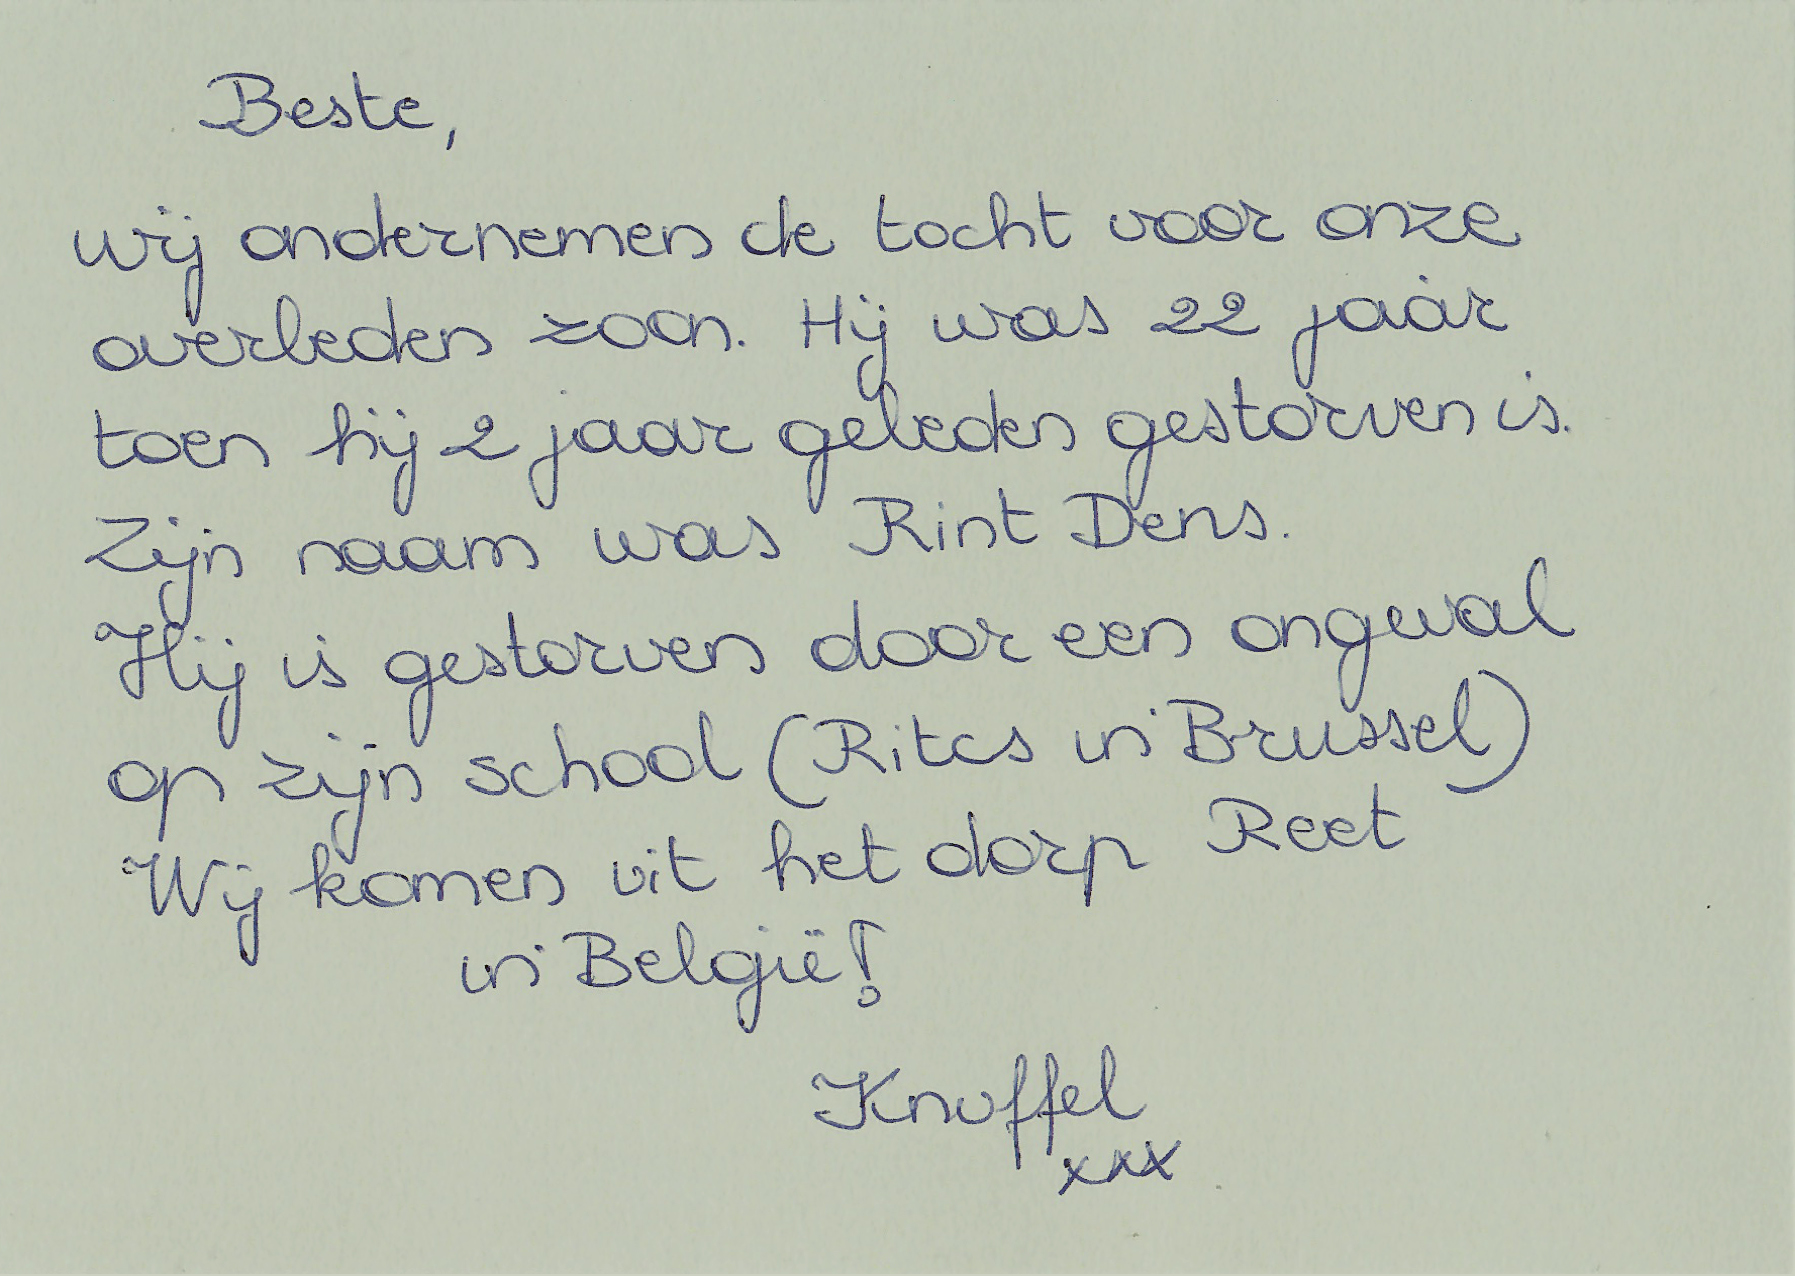 Beste,
wij ondernemen de tocht voor onze
overleden zoon. Hij was 22 jaar
toen hij 2 jaar geleden gestorven is.
Zijn naam was Rint Dens.
Hij is gestorven door een ongeval
op zijn school (Ritcs in Brussel)
Wij komen uit het dorp Reet
in België!
Knuffel
xxx